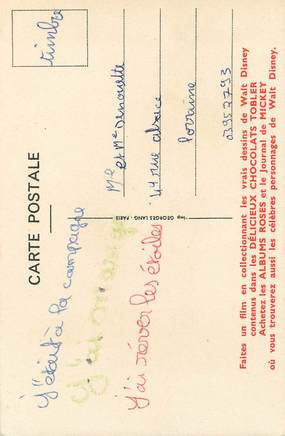 CARTE POSTALE
timbre
J'était à la campagne
J'ai
J'ai rêver les étoiles
Imp. GEORGES LANG - PARIS
Mr et Me
44 rue alsace
Lorraine
03952793
Faites un film en collectionnant les vrais dessins de Walt Disney
contenus dans les DÉLICIEUX CHOCOLATS TOBLER
Achetez les ALBUMS ROSES et le Journal de MICKEY
où vous trouverez aussi les célèbres personnages de Walt Disney.